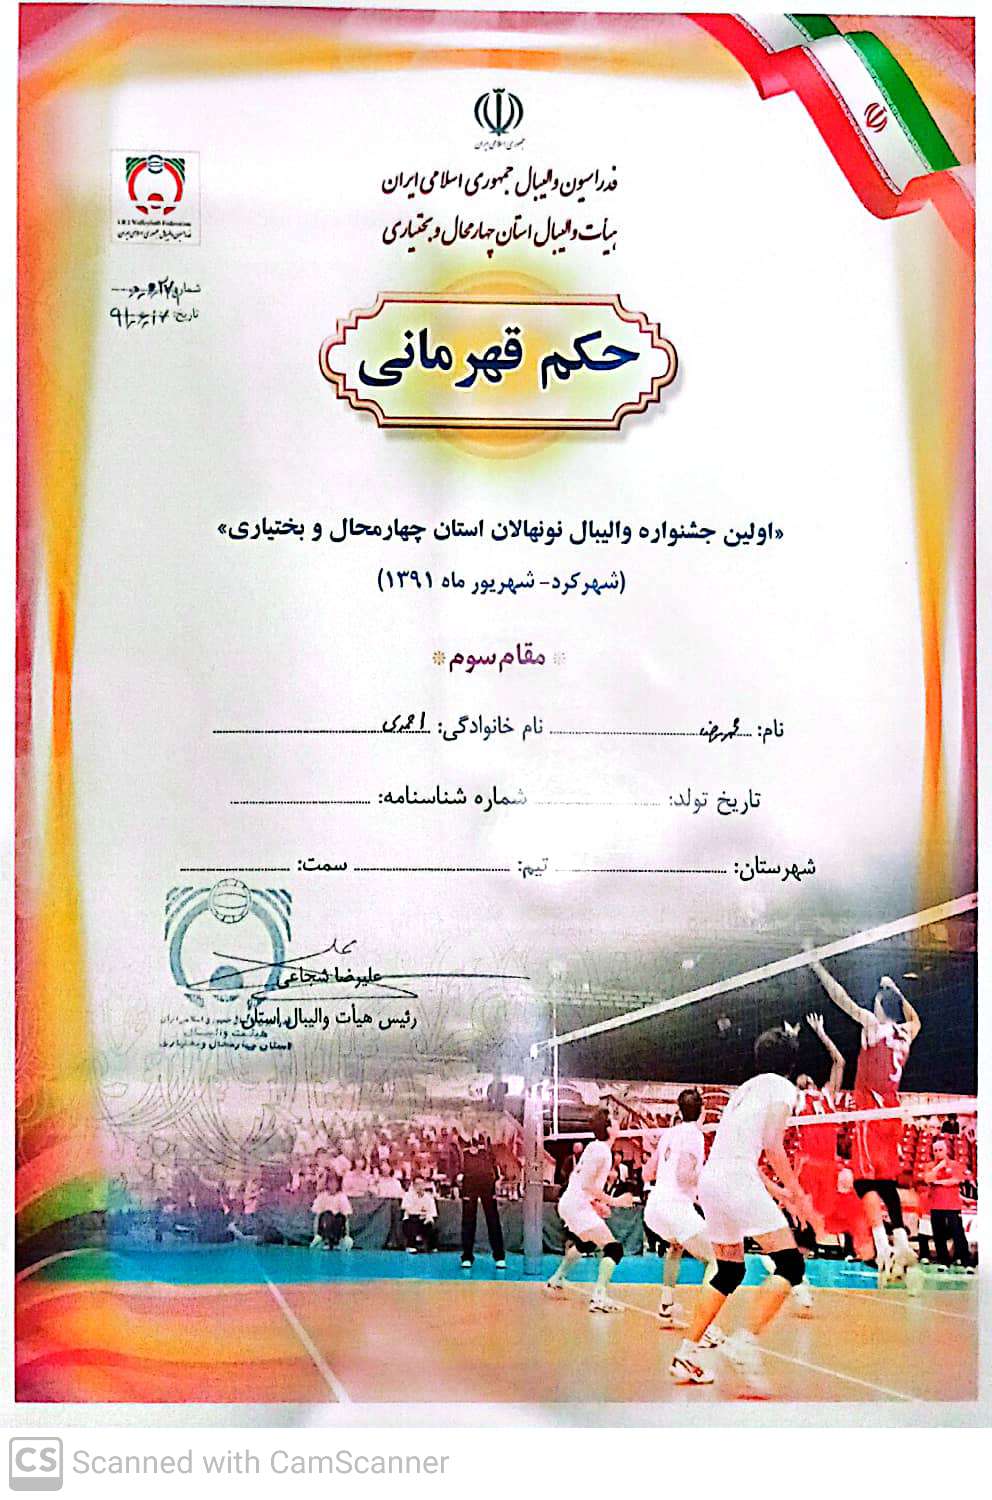 جمهوری اسلامی ایران
فدراسیون والیبال جمهوری اسلامی ایران
هیأت والیبال استان چهارمحال و بختیاری
I.R.I Volleyball Federation
فدراسیون والیبال جمهوری اسلامی ایران
شماره:
تاریخ:
حکم قهرمانی
«اولین جشنواره والیبال نونهالان استان چهارمحال و بختیاری»
(شهرکرد- شهریور ماه ۱۳۹۱)
مقام سوم
نام: محمدرضا نام خانوادگی: احمدی
تاریخ تولد: شماره شناسنامه:
شهرستان: تیم: سمت:
علیرضا شجاعی
رئیس هیأت والیبال استان
هیئت والیبال
استان چهارمحال و بختیاری
CS Scanned with CamScanner